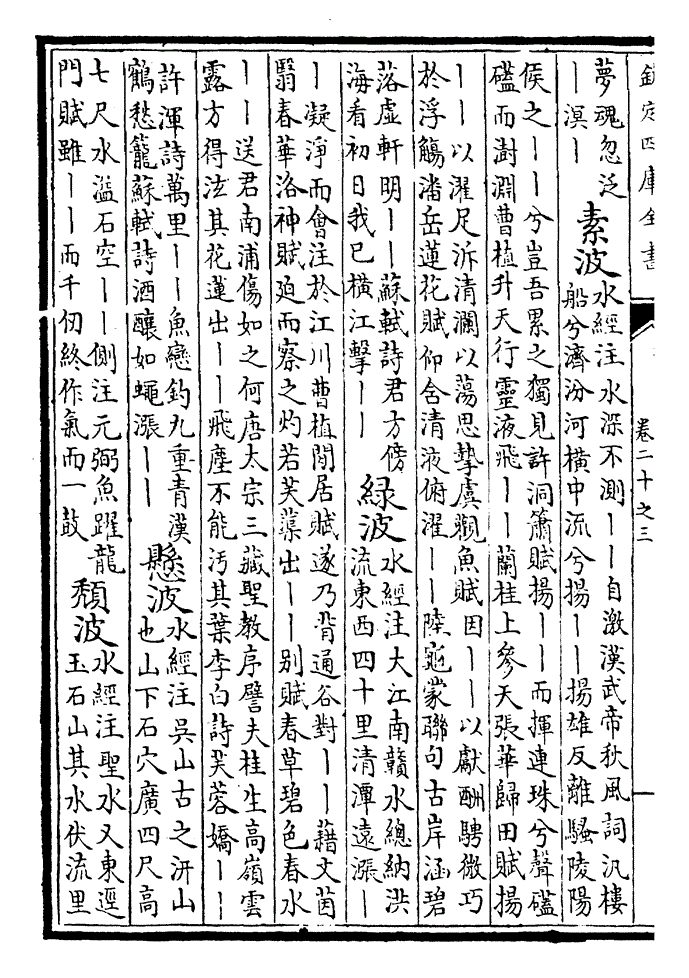 欽定四庫全書
卷二十之三
夢魂忽泛
丨溟丨
素波
水經注水深不測丨丨自激漢武帝秋風詞汎樓
船兮濟汾河橫中流兮揚丨丨揚雄反離騷陵陽
侯之丨丨兮豈吾累之獨見許洞簫賦揚丨丨而揮連珠兮聲礚
礚而澍淵曹植升天行靈液飛丨丨蘭桂上參天張華歸田賦揚
丨丨以濯足泝清瀾以蕩思摯虞觀魚賦因丨丨以獻酬騁微巧
於浮觴潘岳蓮花賦仰含清液俯濯丨丨陸龜蒙聯句古岸涵碧
落虛軒明丨丨蘇軾詩君方傍
海看初日我已橫江擊丨丨
綠波
水經注大江南贛水總納洪
流東西四十里清潭遠漲丨
丨凝淨而會注於江川曹植閒居賦遂乃背通谷對丨丨藉文茵
翳春華洛神賦迫而察之灼若芙蕖出丨丨别賦春草碧色春水
丨丨送君南浦傷如之何唐太宗三藏聖教序譬夫桂生高嶺雲
露方得泫其花蓮出丨丨飛塵不能汚其葉李白詩芙蓉嬌丨丨
許渾詩萬里丨丨魚戀釣九重青漢
鶴愁籠蘇軾詩酒釀如蠅漲丨丨
懸波
水經注吳山古之汧山
也山下石穴廣四尺高
七尺水溢石空丨丨側注元弼魚躍龍
門賦雖丨丨而千仞終作氣而一鼓
頹波
水經注聖水又東逕
玉石山其水伏流里